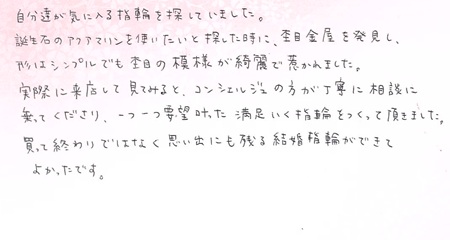 自分達が気に入る指輪を探していました。
誕生石のアクアマリンを使いたいと探した時に、杢目金屋を発見し、
形はシンプルでも杢目の模様が綺麗で惹かれました。
実際に来店して見てみると、コンシェルジュの方が丁寧に相談に
乗ってくださり、一つ一つ要望叶った満足いく指輪をつくって頂きました。
買って終わりではなく思い出にも残る結婚指輪ができて
よかったです。